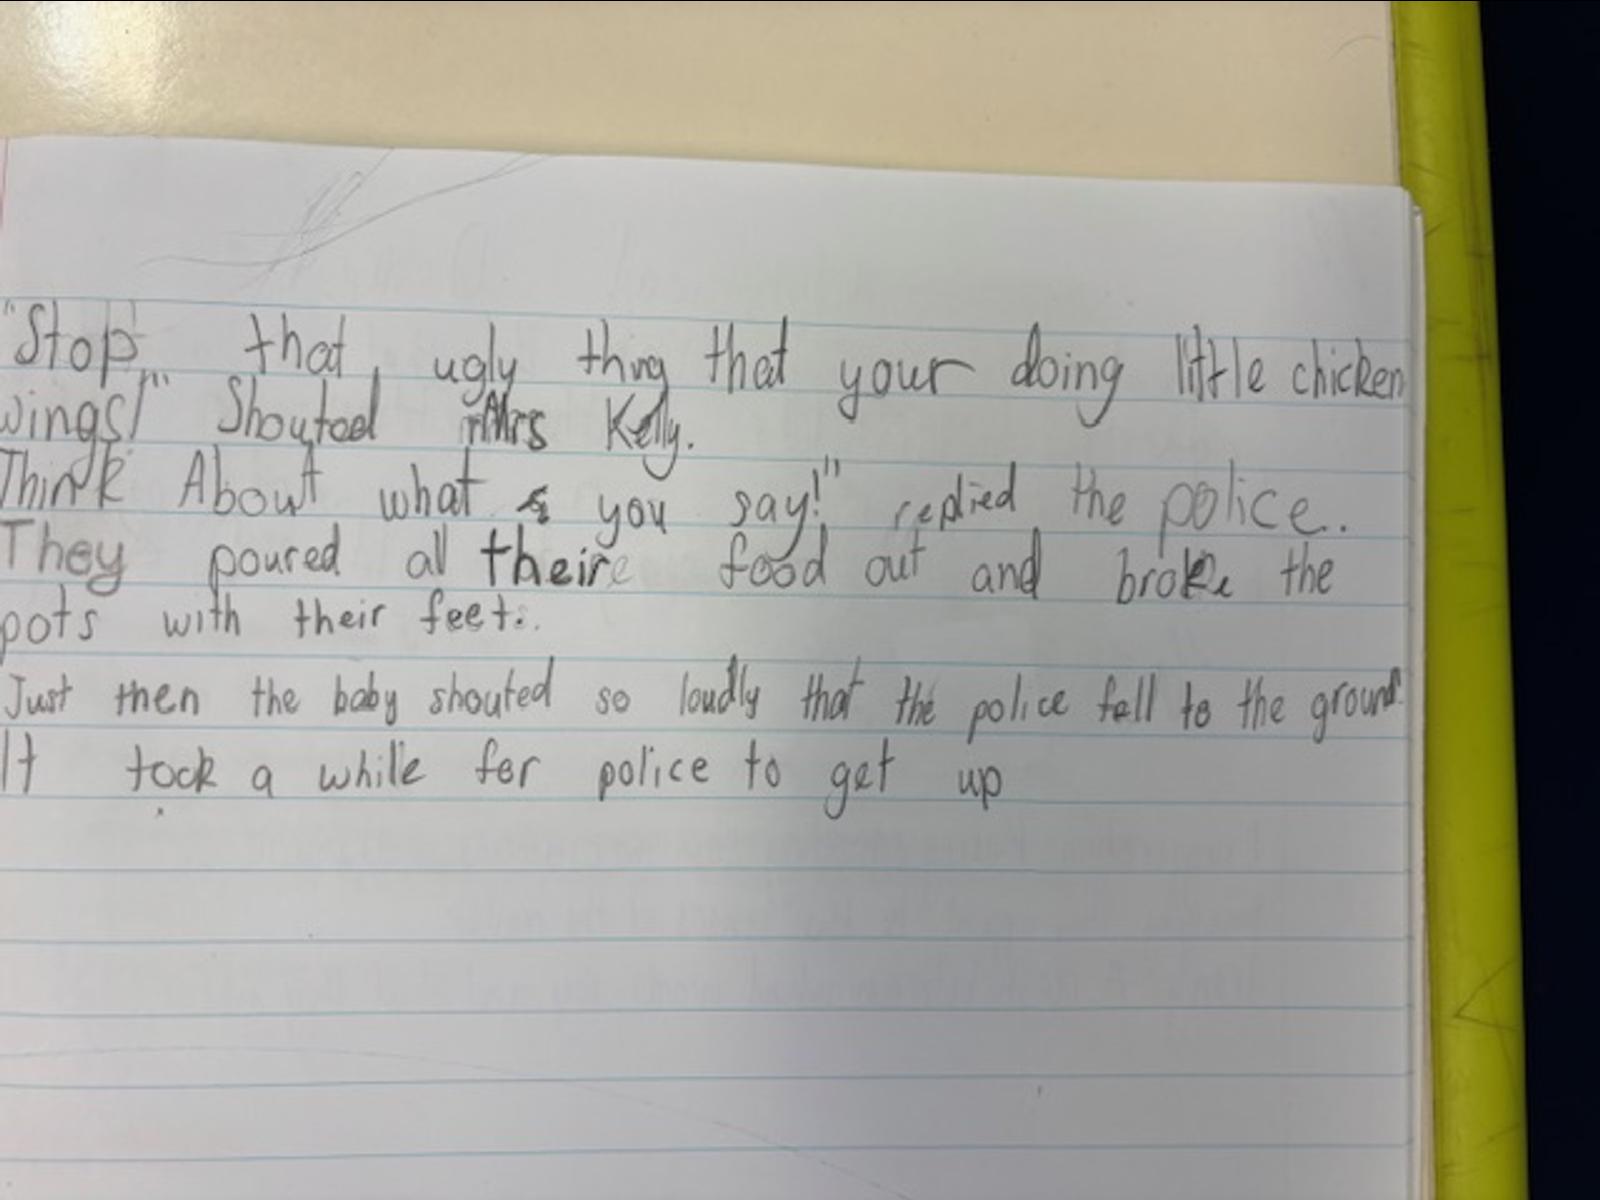 "Stop that, ugly thing that your doing little chicken
wings!" Shouted Mrs Kelly.
Think About what you say!" replied the police.
They poured all their food out and broke the
pots with their feet.
Just then the baby shouted so loudly that the police fell to the ground.
It took a while for police to get up